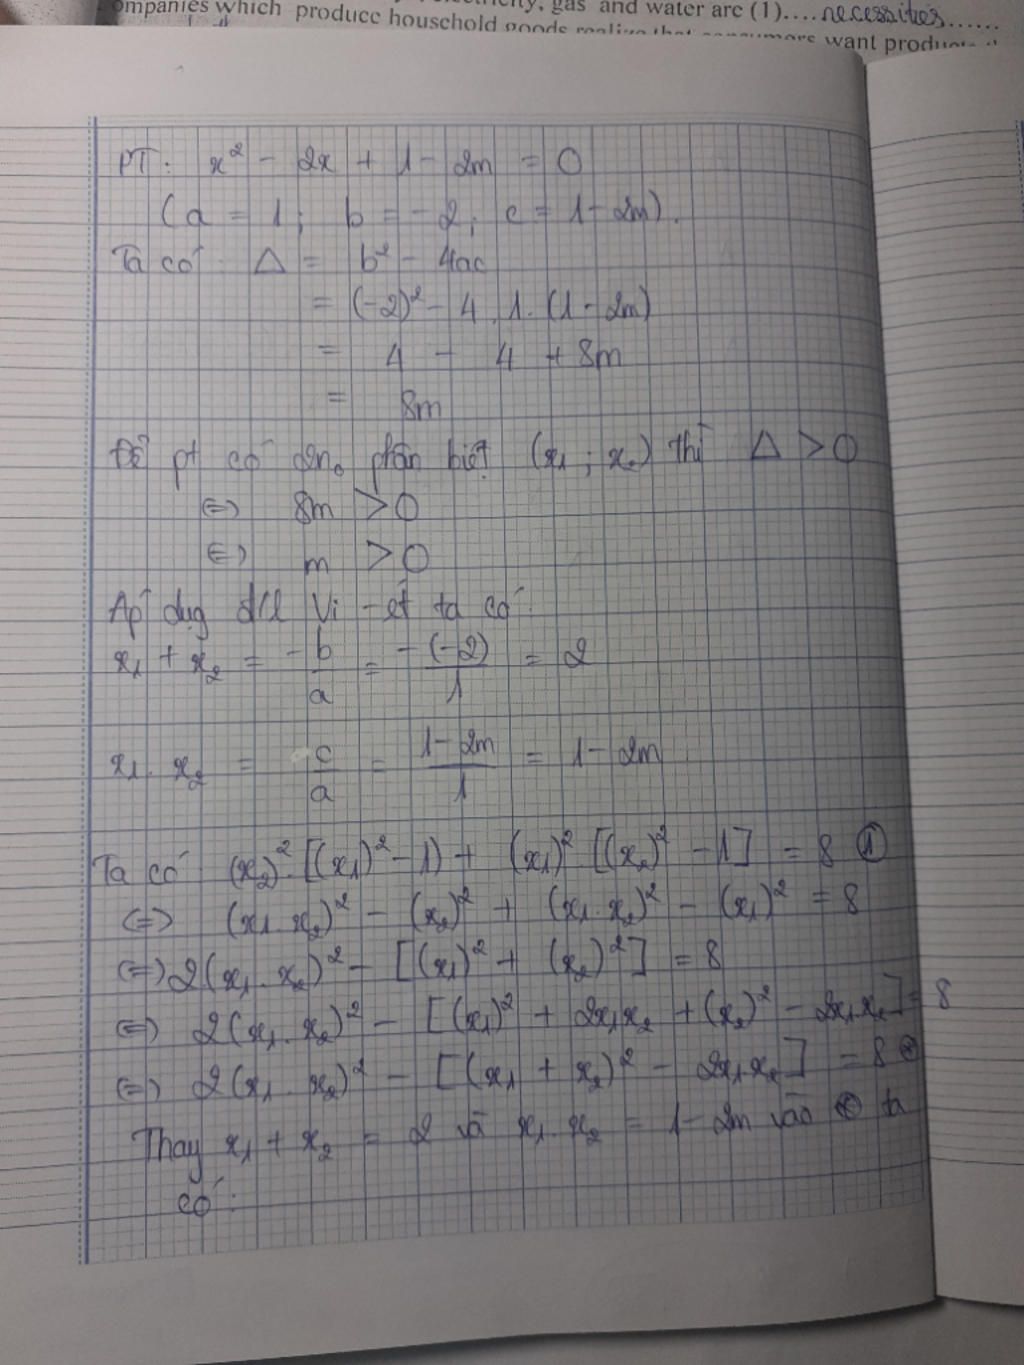 ompanies which produce household goods realize that consumers want products
gas and water are (1)....necessities......
PT: x² - 2x + 1 - 2m = 0
(a = 1; b = -2; c = 1 - 2m).
Ta có: Δ = b² - 4ac
= (-2)² - 4.1.(1 - 2m)
= 4 - 4 + 8m
= 8m
Để pt có 2n₀ phân biệt (x₁; x₂) thì Δ > 0
⇔ 8m > 0
⇔ m > 0
Áp dụg đ/l Vi-ét ta có:
x₁ + x₂ = -b/a = -(-2)/1 = 2
x₁. x₂ = c/a = 1-2m/1 = 1 - 2m
Ta có: (x₂)².[(x₁)² - 1) + (x₁)².[(x₂)² - 1] = 8 ①
(=) (x₁.x₂)² - (x₂)² + (x₁.x₂)² - (x₁)² = 8
(=) 2(x₁.x₂)² - [(x₁)² + (x₂)²] = 8
(=) 2(x₁.x₂)² - [(x₁)² + 2x₁x₂ + (x₂)² - 2x₁.x₂] = 8
(=) 2(x₁.x₂)² - [(x₁ + x₂)² - 2x₁.x₂] = 8
Thay x₁ + x₂ = 2 và x₁.x₂ = 1 - 2m vào ta
có: